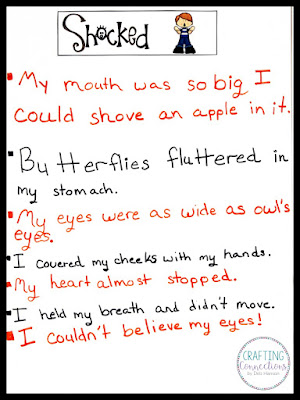 Shocked
My mouth was so big I
could shove an apple in it.
Butterflies fluttered in
my stomach.
My eyes were as wide as owl's
eyes.
I covered my cheeks with my hands.
My heart almost stopped.
I held my breath and didn't move.
I couldn't believe my eyes!
CRAFTING
Connections
by Deb Hanson